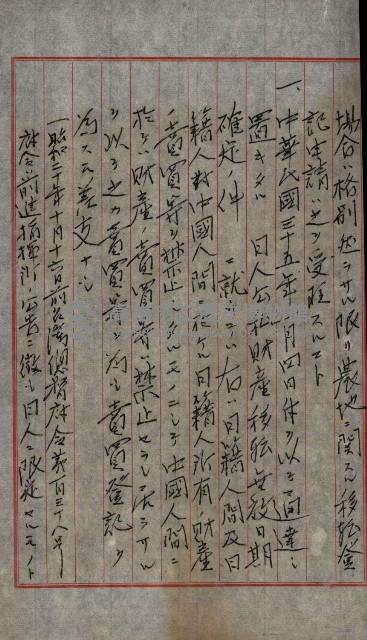 場合格別然ラサル限リ農地ニ関スル移転登
記申請ハ之ヲ受理スルコト
一、中華民國三十五年 月四日付ヲ以テ通達ニ
置キタル 日人公私財産移転無效日期
確定ノ件 ニ就テハ右ハ日籍人間及日
籍人対中國人間ニ於ケル日籍人所有ノ財産
ノ賣買等ヲ禁止シタルモノニシテ中國人間ニ
於ケル財産ノ賣買等ハ禁止セラレ居ラサル
ヲ以テ之カ賣買等ヲ為シ賣買登記ヲ
為スモ差支ナシ
一昭二〇年十月十六日前台湾總督府令第百三十八号
府令前進指揮所ノ公告ニ徴シ日人ニ限定セルモノト